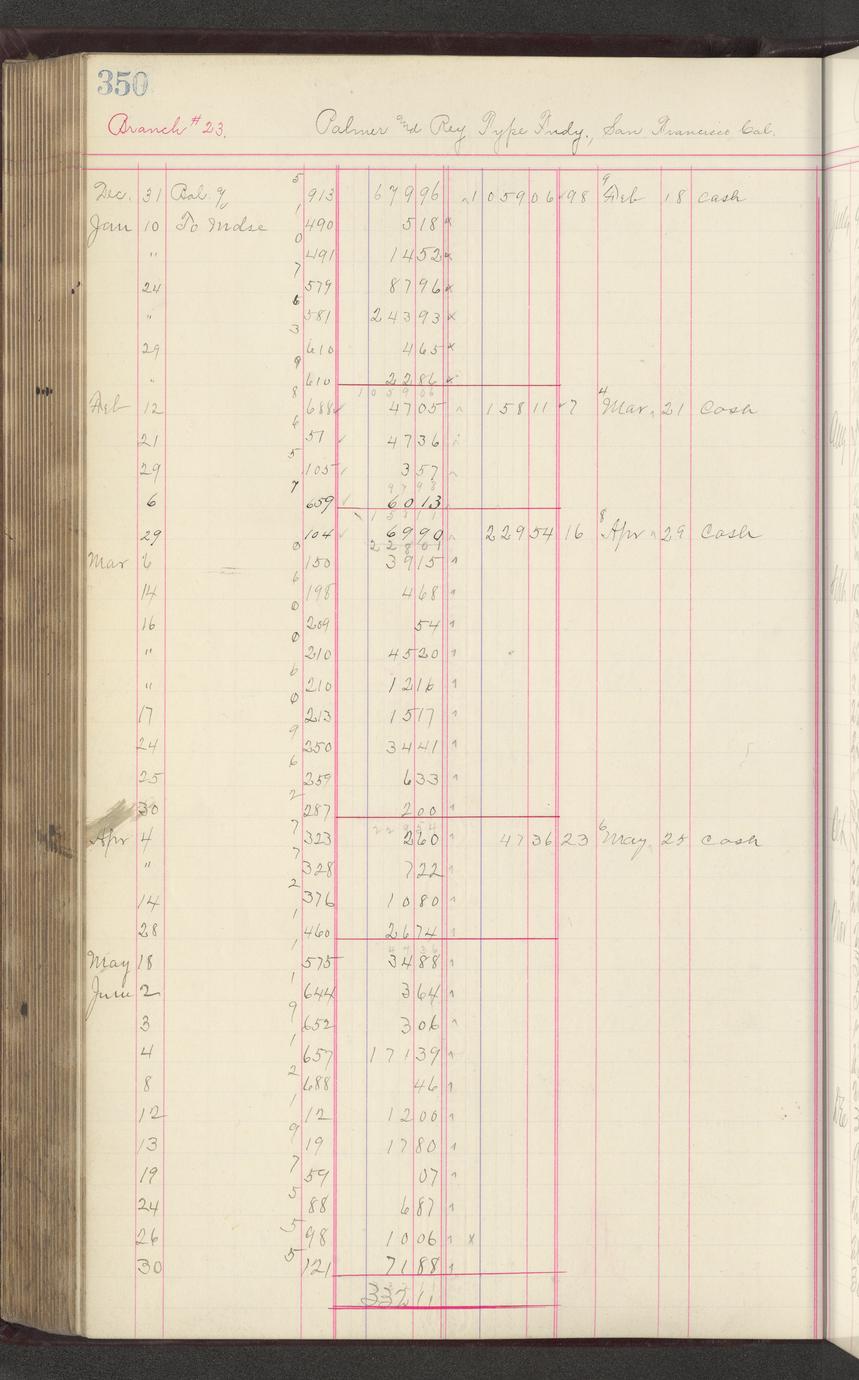 350
Branch #23. Palmer and Rey Type Fndy., San Francisco Cal.
Dec. 31 Bal. 5 913 67996 105906 98 9 Feb 18 cash
Jan 10 To Mdse 1 490 518
" 0 491 1452
24 7 579 8796
" 6 581 24393
29 3 610 465
" 9 610 2286
105906
Feb 12 8 688 4705 15811 7 4 Mar. 21 cash
21 6 51 4736
29 5 105 357
9798
6 7 659 6013
15811
29 104 6990 22954 16 8 Apr 29 cash
22804
Mar 6 0 150 3915
14 6 198 468
16 0 209 54
" 0 210 4520
" 6 210 1216
17 0 213 1517
24 9 250 3441
25 6 259 633
30 2 287 200
22954
Apr 4 7 323 260 4736 23 6 May 25 cash
" 7 328 722
14 2 376 1080
28 1 460 2674
4736
May 18 1 575 3488
June 2 1 644 364
3 9 652 306
4 1 657 17139
8 2 688 46
12 1 12 1200
13 9 19 1780
19 7 59 07
24 5 88 687
26 5 98 1006 x
30 5 121 7188
33211